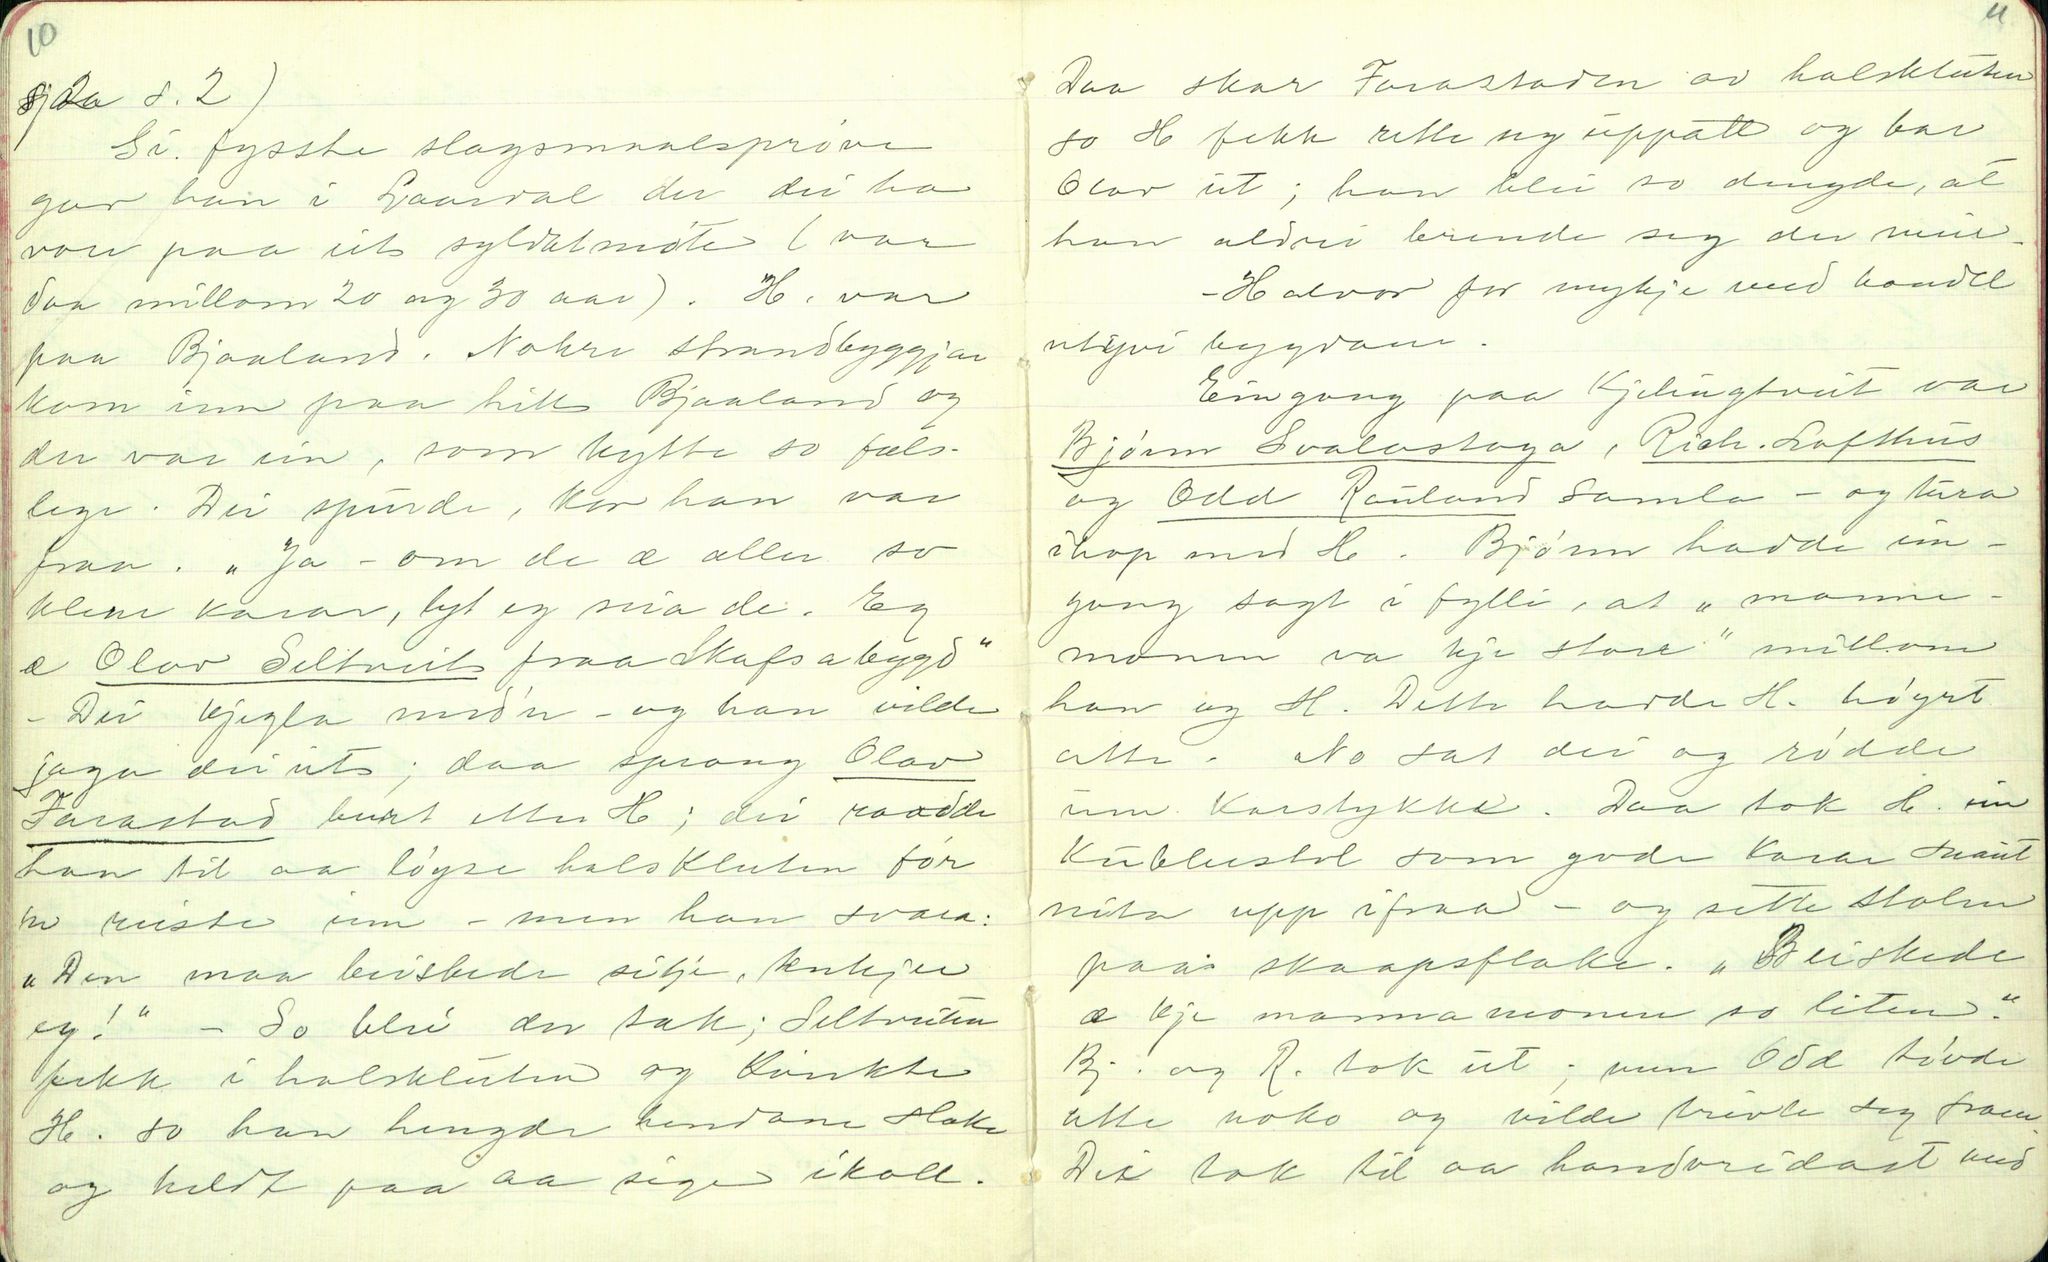 10
sjaa s. 2)
Si fysste slagsmaalsprøve
gav han i Laardal der dei ha
vore paa eit syldatmøte (var
daa millom 20 og 30 aar). H. var
paa Bjaaland. Nokre strandbyggjar
kom inn paa hitt Bjaaland og
der var ein, som kytte so fæls-
lege. Dei spurde, kor han var
fraa. "Ja - om de æ aller so
klene karar, lyt eg seia de. Eg
æ Olav Seltveit fraa Skafsabygd"
- Dei kjegla med'n - og han vilde
jaga dei ut; daa sprang Olav
Farastad burt etter H; dei raadde
han til aa løyse halskluten før
'n reiste inn - men han svara:
"Den maa beiskede sitje, tenkjer
eg!" - So blei der tak; Seltveiten
fekk i halskluten og kvinkte
H. so han hengde hendane slake
og heldt paa aa sige ikoll.
11
Daa skar Farastaden av halskluten
so H fekk rette seg uppatt og bar
Olav ut; han blei so dengde, at
han aldrei brende seg der meir.
- Halvor for mykje med handel
utyvi bygdane.
Eingong paa Kjelingtveit var
Bjørn Svalastoga, Rich. Lofthus
og Odd Rauland samla - og tura
ihop med H. Bjørn hadde ein-
gong sagt i fylli, at "manne-
monen va kje store" millom
han og H. Dette hadde H. høyrt
atte. No sat dei og rødde
um karstykke. Daa tok H. ein
kubbestol som gode karar snaut
neta upp ifraa - og sette stolen
paa skaapsflake. "Beiskede
æ kje mannamonen so liten."
Bj. og R. tok ut; men Odd tøvde
atte noko og vilde trivle seg fram.
Dei tok til aa handvridast med